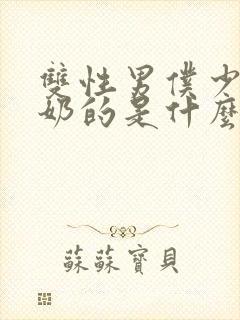 雙性男僕少
奶的是什麼
蘇蘇寶貝